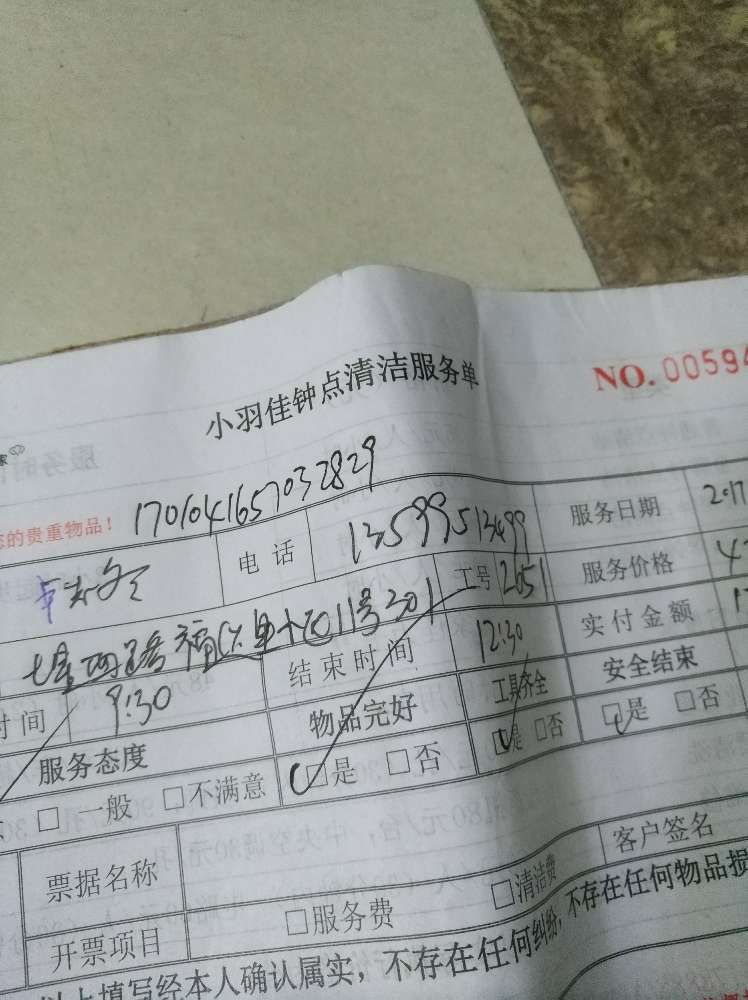 小羽佳钟点清洁服务单
NO. 00594
您的贵重物品！ 1701041657032829
电话 13599513499 服务日期 2017
工号 2051 服务价格
11号301
时间 9:30 结束时间 12:30 实付金额
服务态度 物品完好 工具齐全 安全结束
□一般 □不满意 □是 □否 □是 □否 □是 □否
票据名称 客户签名
开票项目 □服务费 □清洁费
以上填写经本人确认属实，不存在任何纠纷，不存在任何物品损